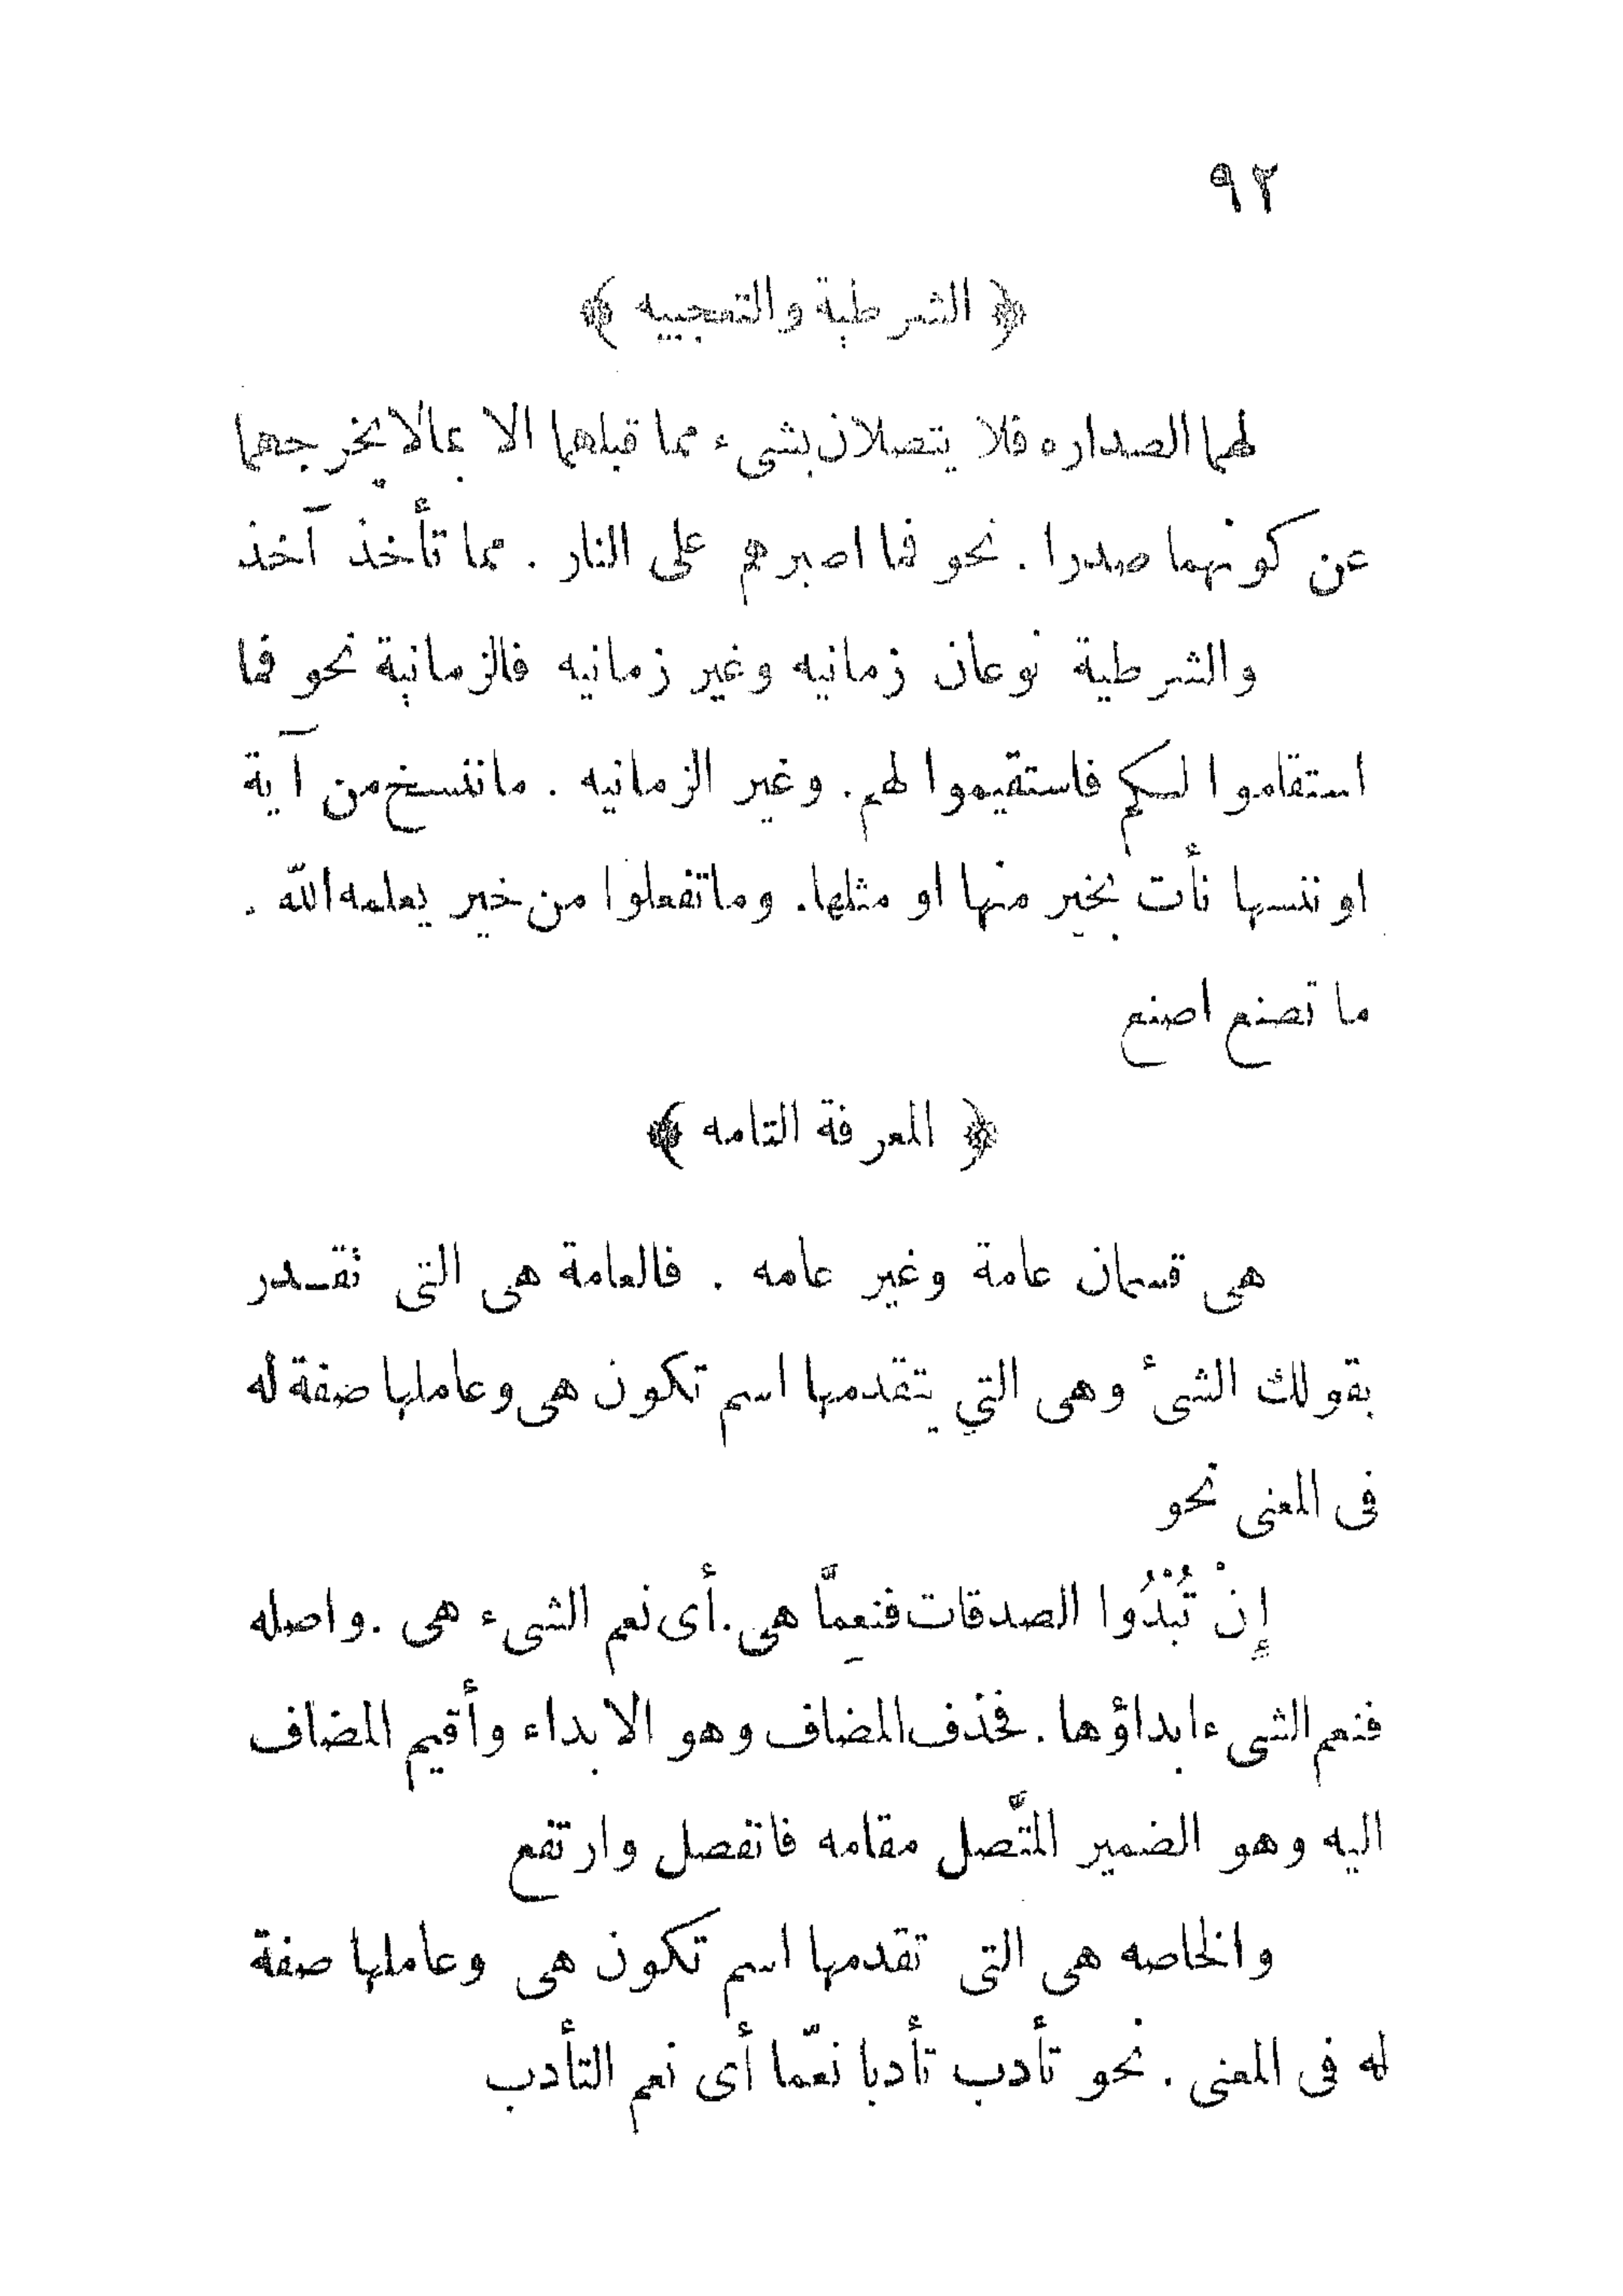 ٩٢
﴿ الشرطية والتعجبيه ﴾
لهما الصداره فلا يتصلان بشيء مما قبلهما الا بمالا يخرجهما
عن كونهما صدرا . نحو فما اصبرهم على النار . مما تأخذ آخذ
والشرطية نوعان زمانيه وغير زمانيه فالزمانية نحو فما
استقاموا لكم فاستقيموا لهم. وغير الزمانيه . ماننسخ من آية
او ننسها نأت بخير منها او مثلها. وماتفعلوا من خير يعلمه الله .
ما تصنع اصنع
﴿ المعرفة التامه ﴾
هى قسمان عامة وغير عامه . فالعامة هى التى تقدر
بقولك الشئ وهى التي يتقدمها اسم تكون هى وعاملها صفة له
فى المعنى نحو
إِنْ تُبْدُوا الصدقات فنعِمَّا هى. أى نعم الشىء هى . واصله
فنعم الشىء ابداؤها . فحذف المضاف وهو الابداء وأقيم المضاف
اليه وهو الضمير المتَّصل مقامه فانفصل وارتفع
والخاصه هى التى تقدمها اسم تكون هى وعاملها صفة
له فى المعنى . نحو تأدب تأدبا نعّما أى نعم التأدب